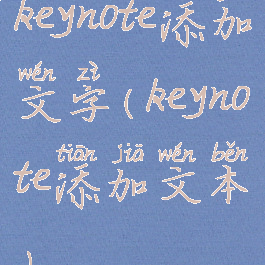 keynote添加
wén zì
文字(keyno
tiān jiā wén běn
te添加文本
)